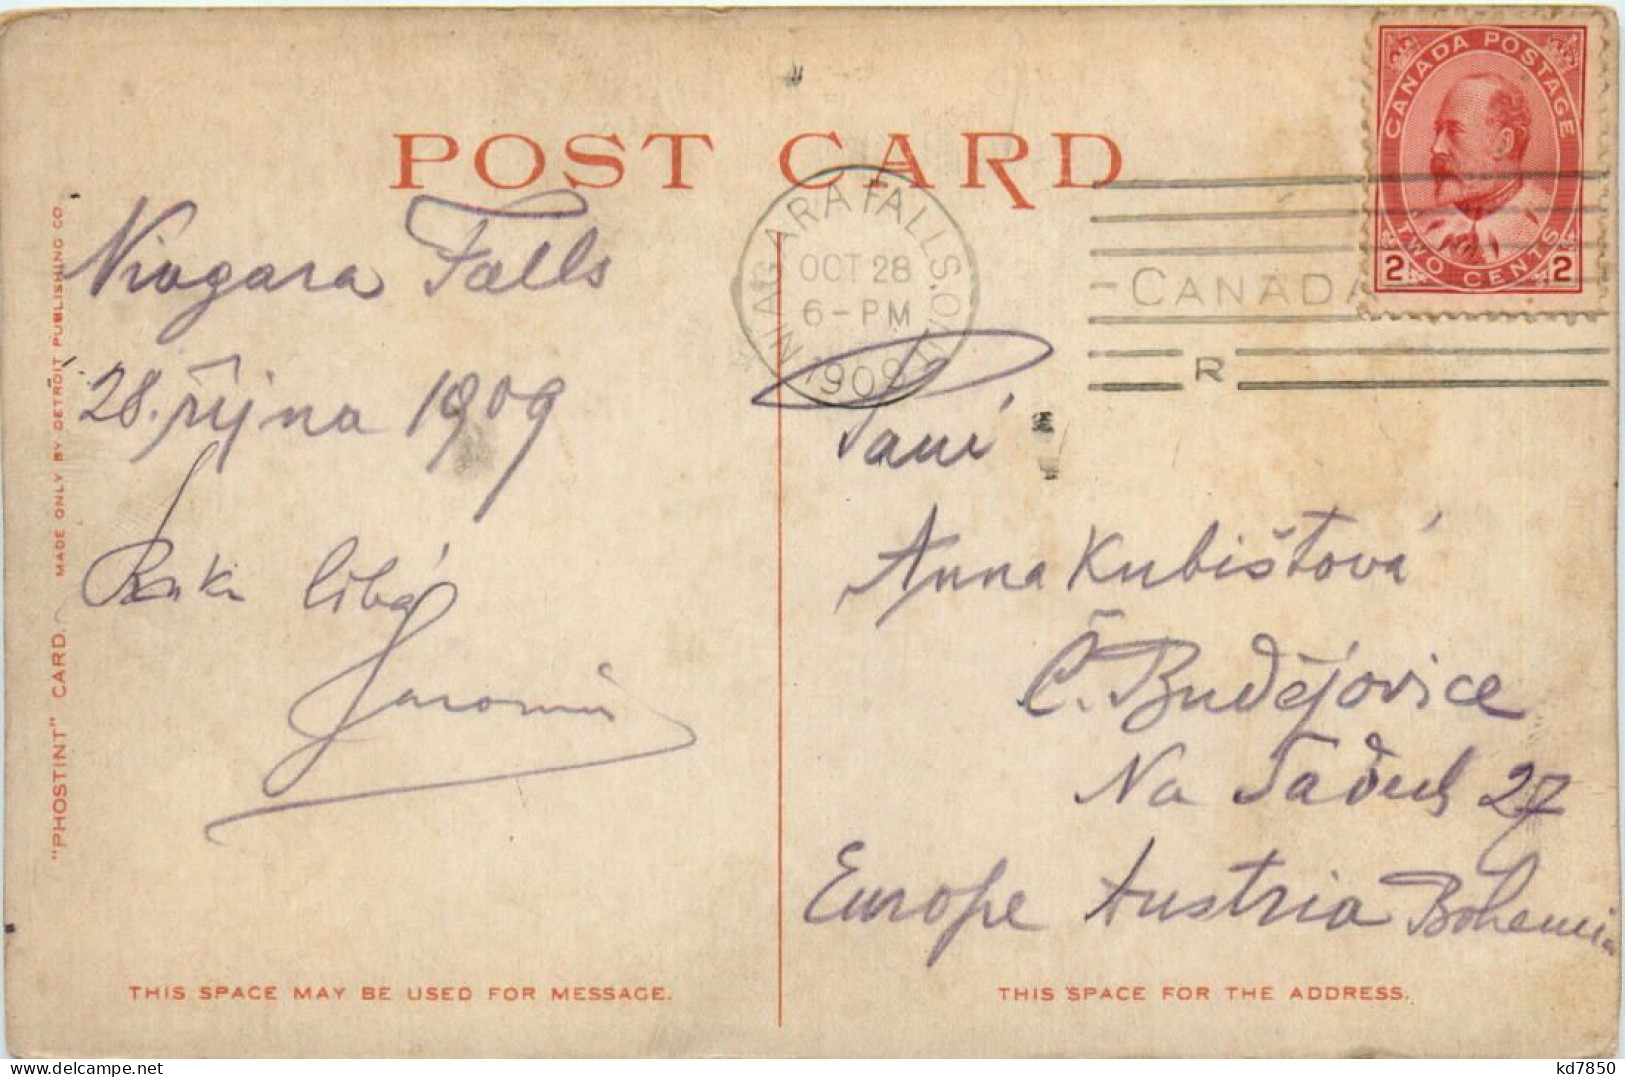 POST CARD
CANADA POSTAGE
2 TWO CENTS 2
NIAGARA FALLS. ONT.
OCT 28
6-PM
1909
CANADA
R
Niagara Falls
28. října 1909
Ruku líbá
Jaromír
Paní
Anna Kubištová
Č. Budějovice
Na Sadech 27
Europe Austria Bohemia
"PHOSTINT" CARD. MADE ONLY BY DETROIT PUBLISHING CO.
THIS SPACE MAY BE USED FOR MESSAGE.
THIS SPACE FOR THE ADDRESS.
delcampe.net
kd7850